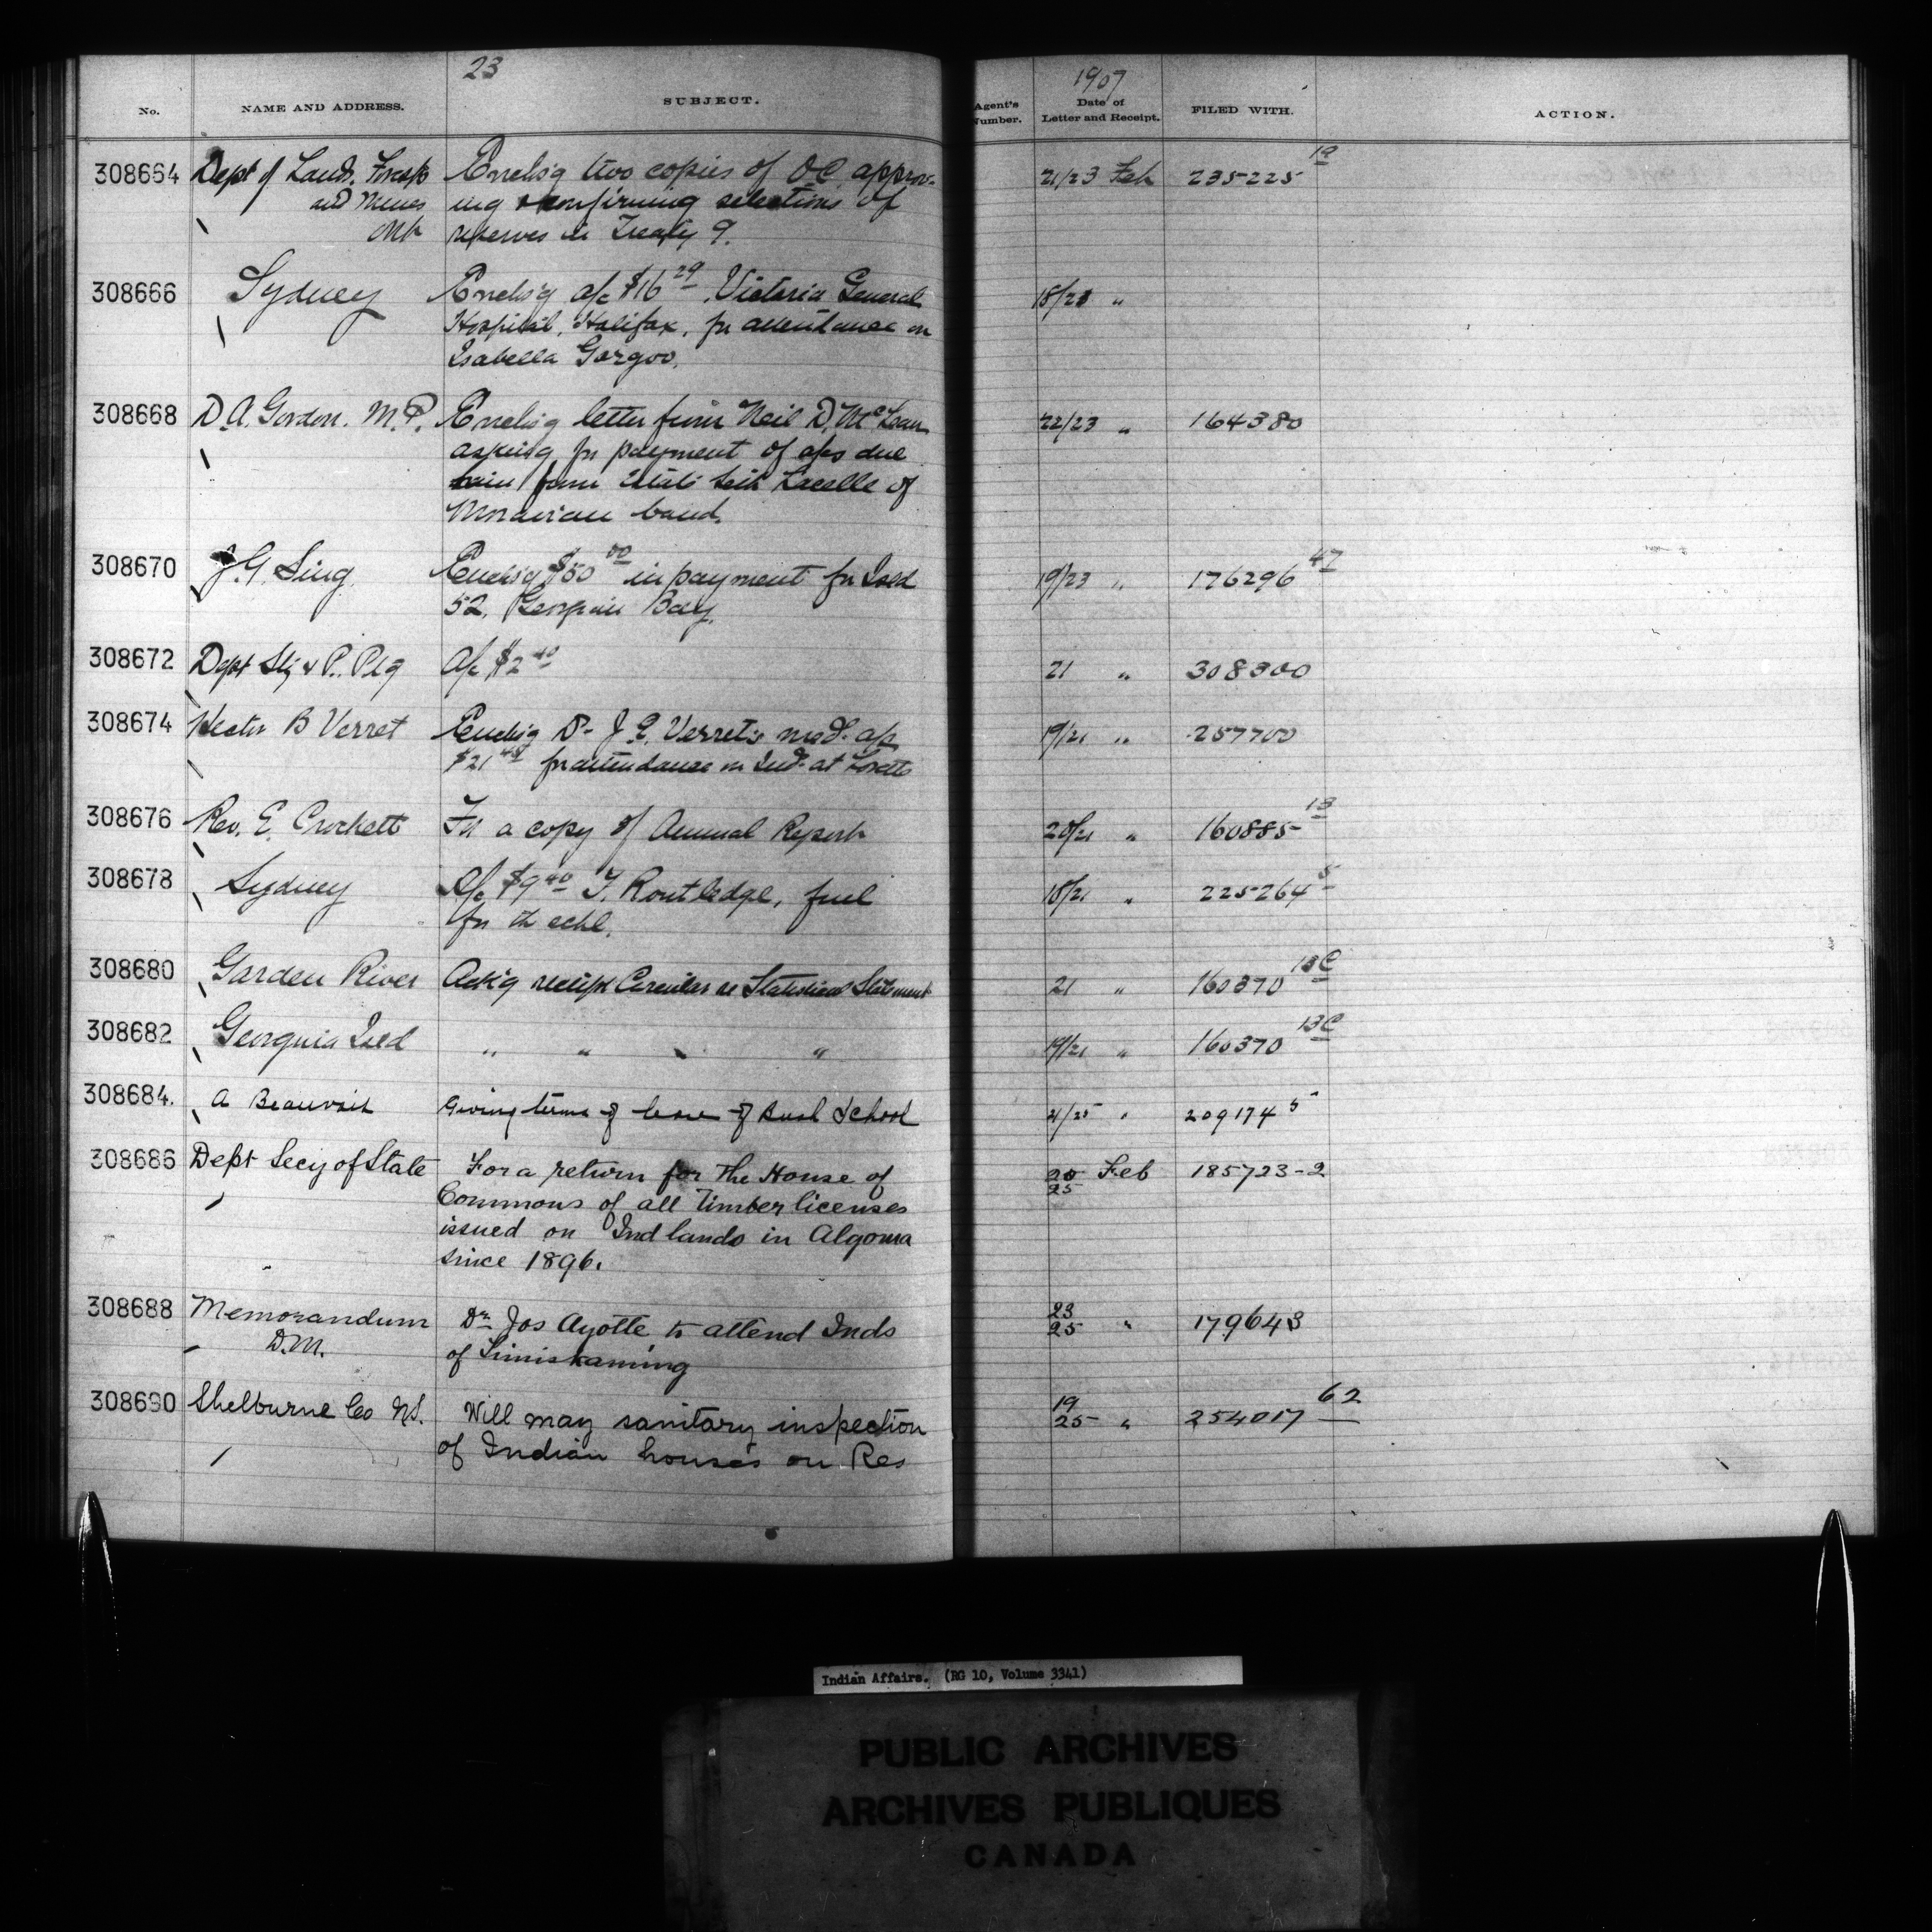 23
1907
No. NAME AND ADDRESS. SUBJECT. Agent's Number. Date of Letter and Receipt. FILED WITH. ACTION.
308664 Dept of Lands, Forests Enclos'g two copies of OC approv- 21/23 Feb 235225 19
and Mines ing & confirming selections of
Ont reserves in Treaty 9.
308666 Sydney Enclos'g a/c $16 29 Victoria General 18/21 "
Hospital, Halifax, for attendance on
Isabella Gorgoo.
308668 D.A. Gordon. M.P. Enclos'g letter from Neil D. McLean 22/23 " 164380
asking for payment of a/cs due
him from of
Moravian band.
308670 J.G. Sing. Enclos'g $50 00 in payment for Isld 19/23 " 176296 47
52, Georgian Bay.
308672 Dept Sty & P. Ptg A/c $2 40 21 " 308300
308674 Hector B Verret Enclos'g Dr J.E. Verret's med. a/c 19/21 " 257700
$21 for attendance on Ind. at Lorette
308676 Rev. E. Crockett For a copy of Annual Report 20/21 " 160885 13
308678 Sydney A/c $9 40 T. Routledge, fuel 18/21 " 225264 5
for th schl.
308680 Garden River Ack'g receipt Circular re Statistical Statement 21 " 160370 13C
308682 Georgina Isld " " " " 19/21 " 160370 13C
308684. A Beauvais Giving terms of lease of Bush School 21/25 " 209174 5
308686 Dept Secy of State For a return for The House of 20/25 Feb 185723-2
Commons of all timber licenses
issued on Ind lands in Algoma
since 1896.
308688 Memorandum Dr. Jos Ayotte to attend Inds 23/25 " 179643
D.M. of Timiskaming
308690 Shelburne Co NS. Will may sanitary inspection 19/25 " 254017 62
of Indian houses on Res
Indian Affairs. (RG 10, Volume 3341)
PUBLIC ARCHIVES
ARCHIVES PUBLIQUES
CANADA